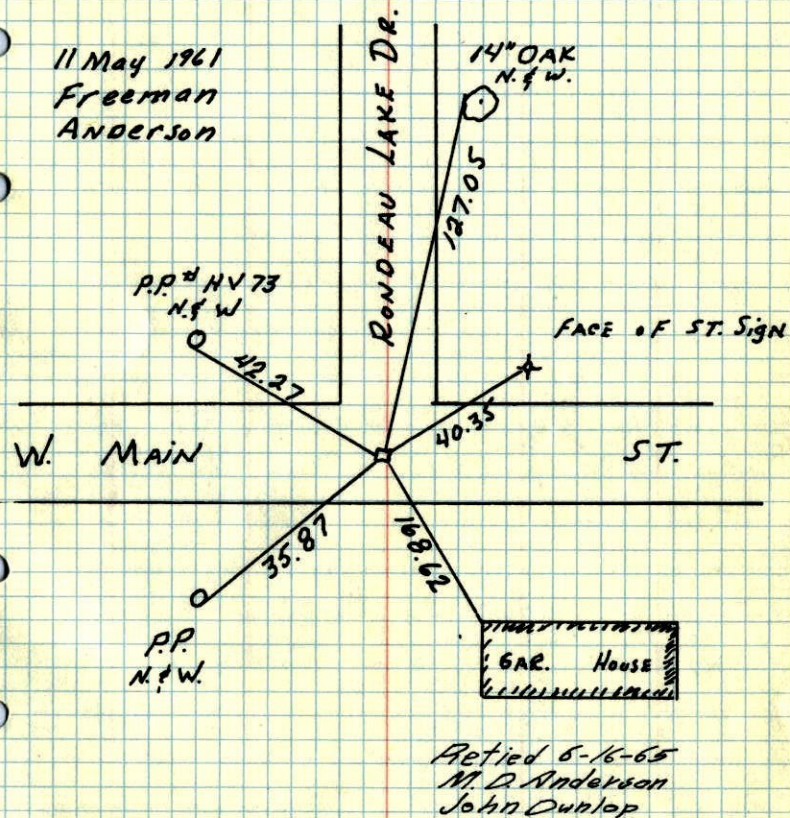 11 May 1961
Freeman
Anderson
RONDEAU LAKE DR.
14" OAK
N. & W.
127.05
P.P. # HV 73
N. & W
42.27
FACE OF ST. SigN
40.35
W. MAiN ST.
35.87
168.62
P.P.
N. & W.
GAR. HOUSE
Retied 6-16-65
M. D. Anderson
John Dunlop